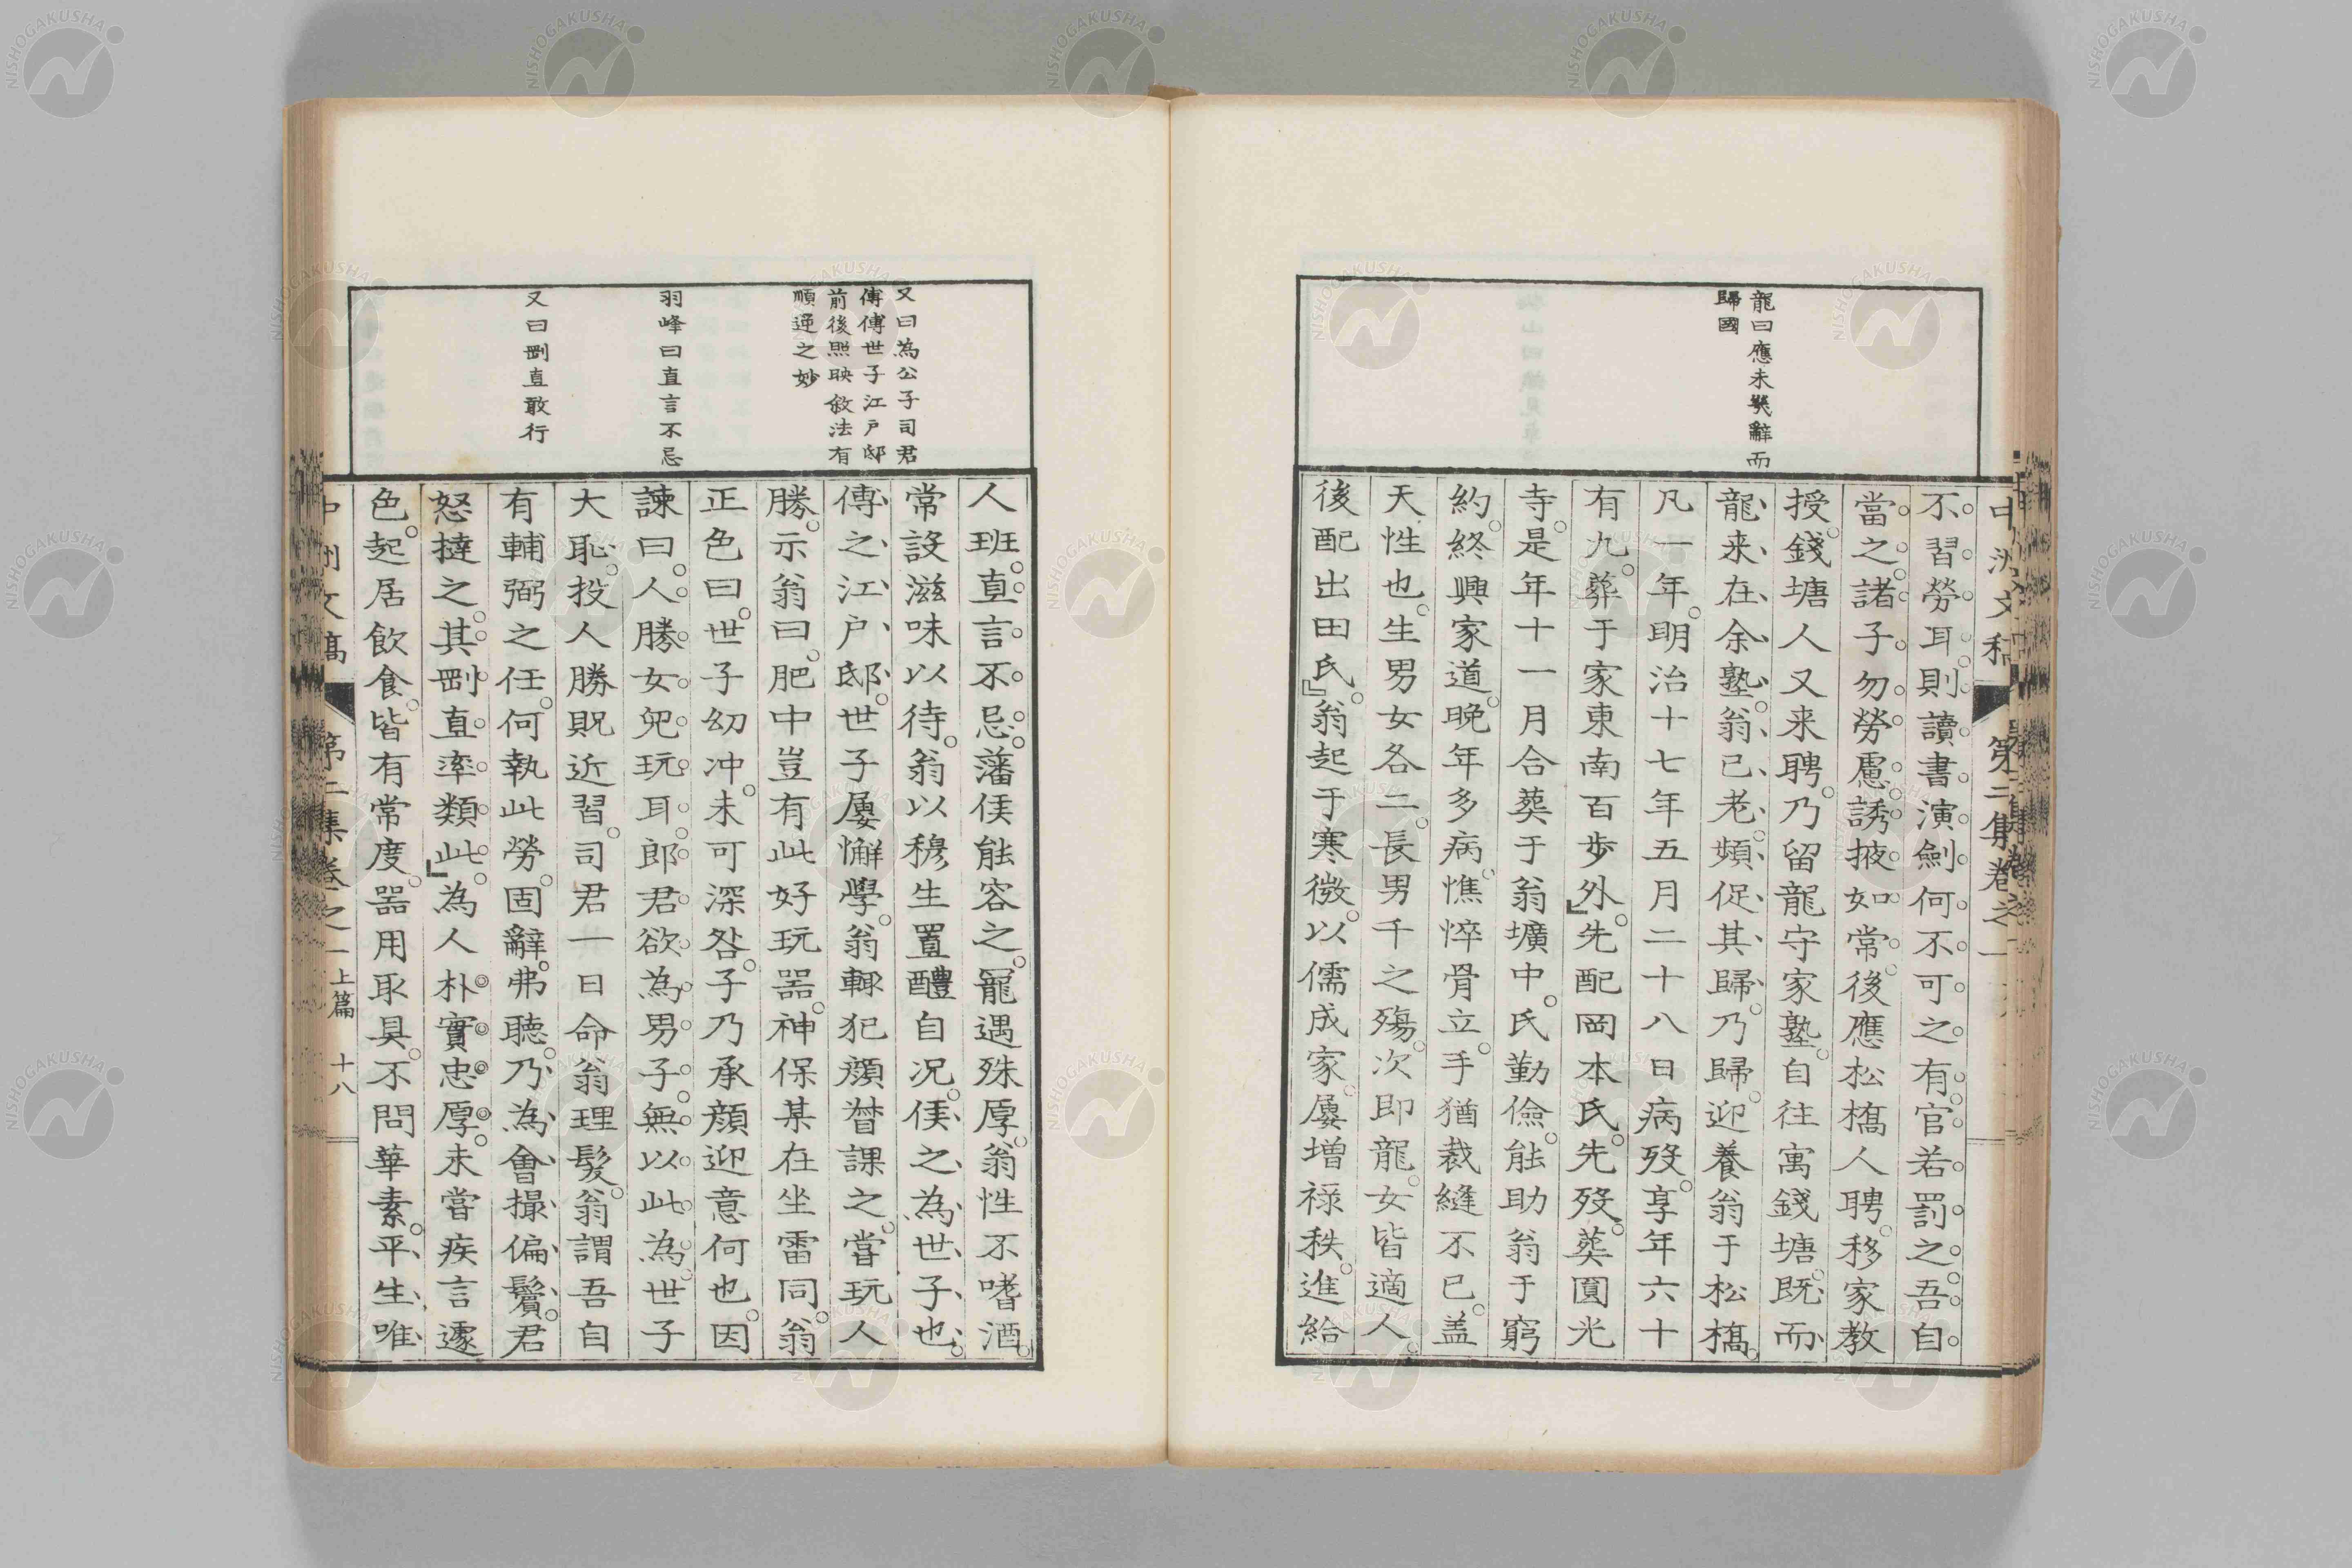 龍曰應未幾辭而
歸國
不習勞耳則讀書演劍何不可之有官若罰之吾自
當之諸子勿勞慮誘掖如常後應松橋人聘移家教
授錢塘人又来聘乃留龍守家塾自往寓錢塘既而
龍来在余塾翁已老頻促其歸乃歸迎養翁于松橋
凡一年明治十七年五月二十八日病歿享年六十
有九葬于家東南百歩外先配岡本氏先歿葬圓光
寺是年十一月合葬于翁壙中氏勤儉能助翁于窮
約終興家道晩年多病憔悴骨立手猶裁縫不已盖
天性也生男女各二長男千之殤次即龍女皆適人
後配出田氏翁起于寒微以儒成家屢増禄秩進給
又曰為公子司君
傅傅世子江戸邸
前後照映敘法有
順逆之妙
羽峰曰直言不忌
又曰剛直敢行
人班直言不忌藩侯能容之寵遇殊厚翁性不嗜酒
常設滋味以待翁以穆生置醴自況侯之為世子也
傅之江戸邸世子屢懈學翁輙犯顔督課之嘗玩人
勝示翁曰肥中豈有此好玩器神保某在坐雷同翁
正色曰世子幼冲未可深咎子乃承顔迎意何也因
諫曰人勝女兒玩耳郎君欲為男子無以此為世子
大恥投人勝貺近習司君一日命翁理髪翁謂吾自
有輔弼之任何執此勞固辭弗聴乃為會撮偏鬢君
怒撻之其剛直率類此為人朴實忠厚未嘗疾言遽
色起居飲食皆有常度器用取具不問華素平生唯
中洲文稿 第二集卷之一上篇 十八